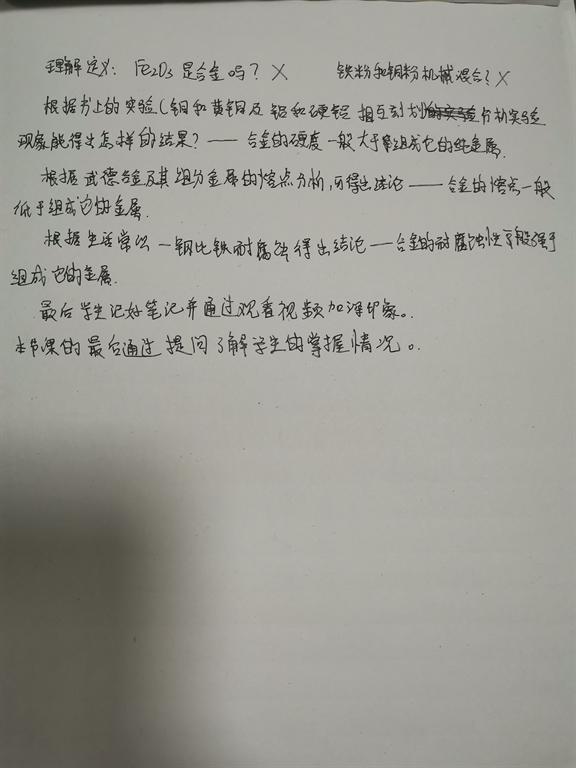 理解定义: Fe2O3 是合金吗? × 铁粉和铜粉机械混合? ×
根据书上的实验(铜和黄铜及铝和硬铝 相互刻划 分析实验
现象能得出怎样的结果? —— 合金的硬度一般大于组成它的纯金属.
根据武德合金及其组分金属的熔点分析,可得出结论 —— 合金的熔点一般
低于组成它的金属.
根据生活常识 — 钢比铁耐腐蚀得出结论 — 合金的耐腐蚀性一般强于
组成它的金属.
最后学生记好笔记并通过观看视频加深印象。.
本节课的最后通过提问了解学生的掌握情况。.